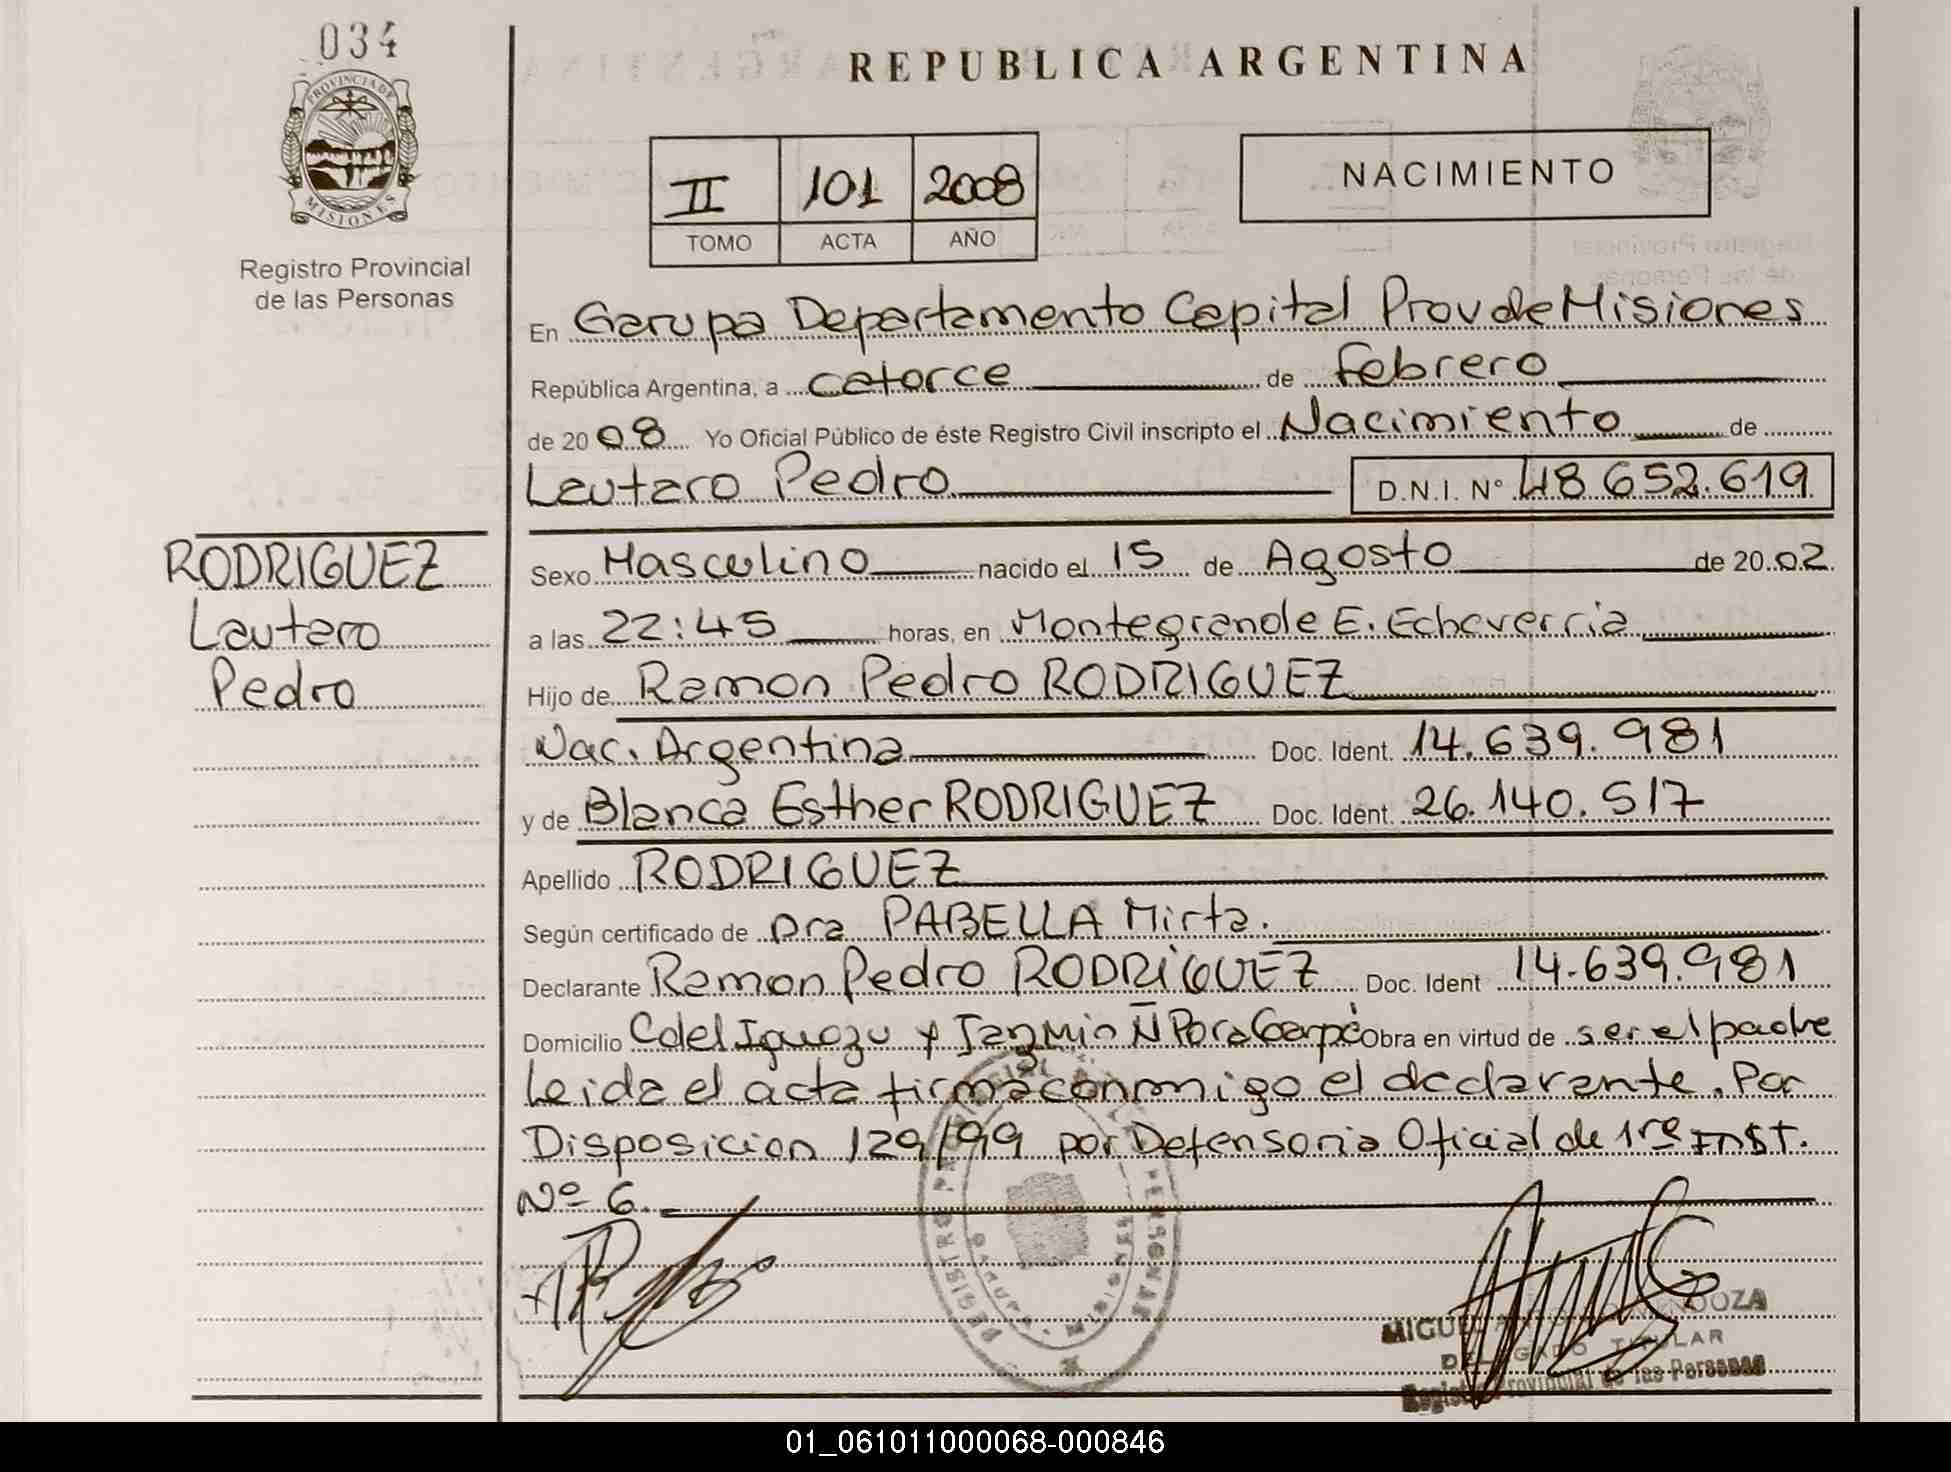 034
PROVINCIA DE
MISIONES
Registro Provincial
de las Personas
REPUBLICA ARGENTINA
II 101 2008
TOMO ACTA AÑO
NACIMIENTO
En Garupa Departamento Capital Prov de Misiones
República Argentina, a catorce de Febrero
de 2008 Yo Oficial Público de éste Registro Civil inscripto el Nacimiento de
Lautaro Pedro D.N.I. N° 48.652.619
RODRIGUEZ
Lautaro
Pedro
Sexo Masculino nacido el 15 de Agosto de 2002
a las 22:45 horas, en Montegrande E. Echeverria
Hijo de Ramon Pedro RODRIGUEZ
Nac. Argentina Doc. Ident. 14.639.981
y de Blanca Esther RODRIGUEZ Doc. Ident. 26.140.517
Apellido RODRIGUEZ
Según certificado de Dra PABELLA Mirta.
Declarante Ramon Pedro RODRIGUEZ Doc. Ident 14.639.981
Domicilio C del Iguazu y Jazmin Ñ Pora Garpá Obra en virtud de ser el padre
Leida el acta firma conmigo el declarante. Por
Disposicion 129/99 por Defensoria Oficial de 1ra Inst.
Nº 6.
REGISTRO PERSONAS
MIGUEL MENDOZA
DELEGADO TITULAR
Registro Provincial de las Personas
01_061011000068-000846